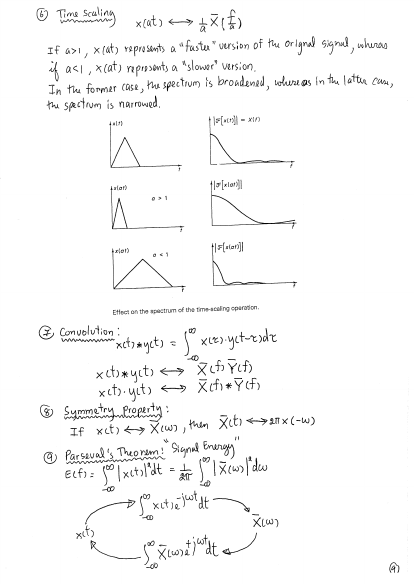 ⑥ Time Scaling x(at) ⟷ 1/a X̄(f/a)
If a>1, x(at) represents a "faster" version of the orignal signal, whereas
if a<1, x(at) represents a "slower" version.
In the former case, the spectrum is broadened, whereas in the latter case,
the spectrum is narrowed.
x(t) t |F[x(t)]| = X(f) f
x(at) a > 1 t |F[x(at)]| f
x(at) a < 1 t |F[x(at)]| f
Effect on the spectrum of the time-scaling operation.
⑦ Convolution:
x(t)*y(t) = ∫_{-∞}^{∞} x(τ)·y(t-τ)dτ
x(t)*y(t) ⟷ X̄(f) Ȳ(f)
x(t)·y(t) ⟷ X̄(f) * Ȳ(f)
⑧ Symmetry Property:
If x(t) ⟷ X̄(ω), then X̄(t) ⟷ 2π x(-ω)
⑨ Parseval's Theorem: "Signal Energy"
E(f) = ∫_{-∞}^{∞} |x(t)|²dt = 1/2π ∫_{-∞}^{∞} |X̄(ω)|²dω
∫_{-∞}^{∞} x(t)e^{-jωt}dt
x(t) X̄(ω)
∫_{-∞}^{∞} X̄(ω)e^{+jωt}dt
(9)